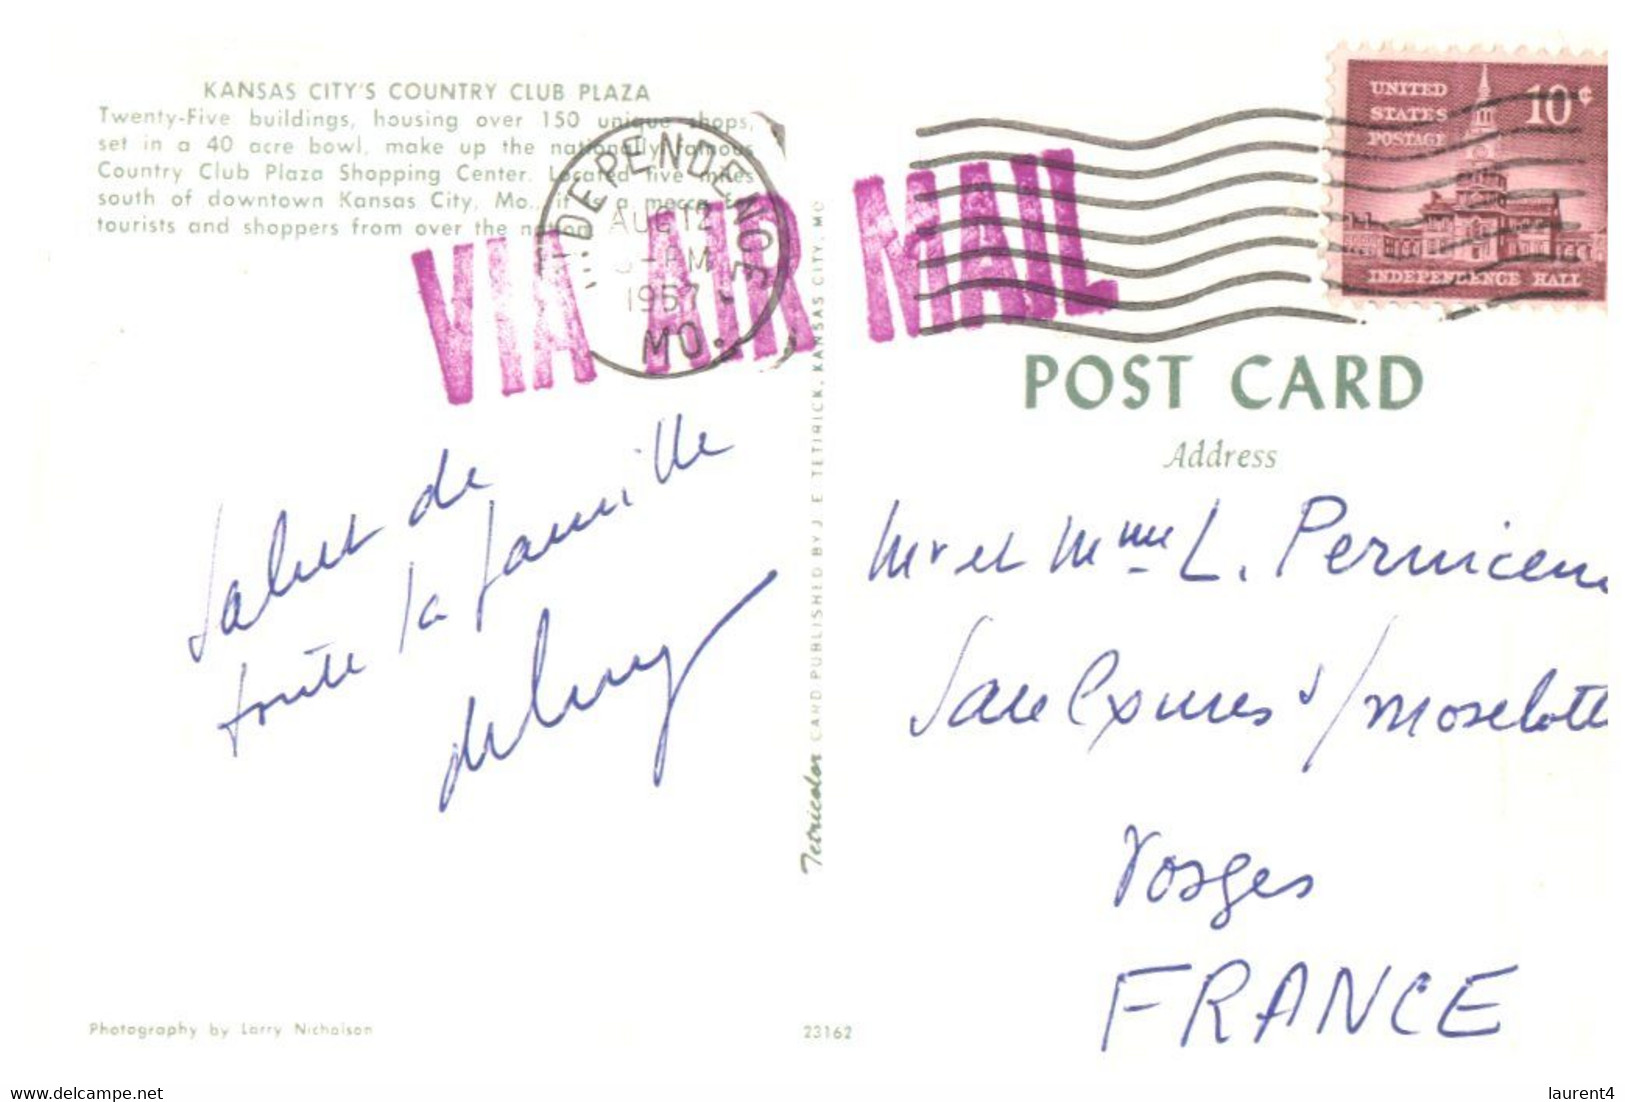 KANSAS CITY'S COUNTRY CLUB PLAZA
Twenty-Five buildings, housing over 150 unique shops,
set in a 40 acre bowl, make up the nationally famous
Country Club Plaza Shopping Center. Located five miles
south of downtown Kansas City, Mo., it is a mecca for
tourists and shoppers from over the nation.
INDEPENDENCE
AUG 12
PM
1957
MO.
VIA AIR MAIL
UNITED
STATES
POSTAGE
10¢
INDEPENDENCE HALL
POST CARD
Address
Salut de
toute la famille
Mr et Mme L.
s/Moselotte
Vosges
FRANCE
Tetricolor CARD PUBLISHED BY J. E. TETIRICK, KANSAS CITY, MO.
Photography by Larry Nicholson
23162
www.delcampe.net
laurent4